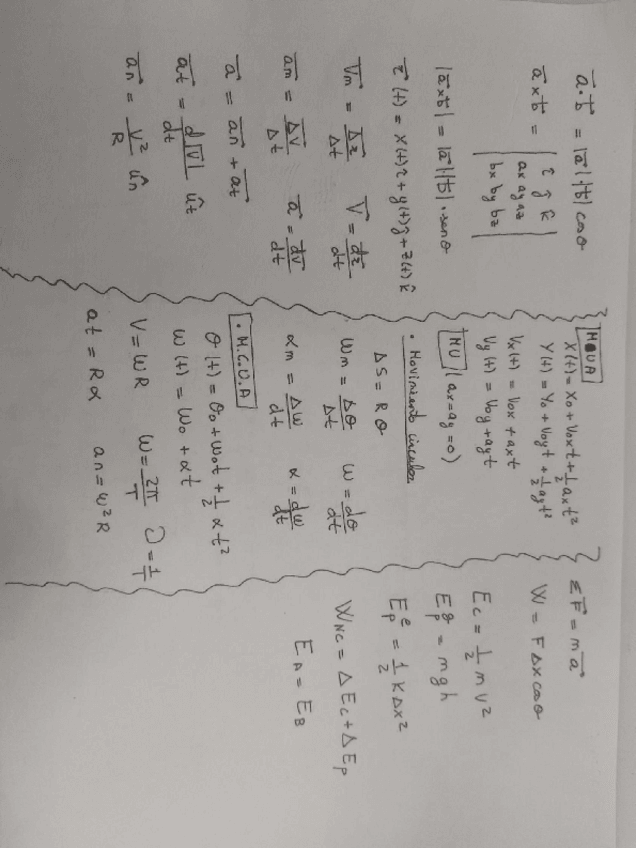 a̅·b̅ = |a̅|·|b̅| cos θ
a̅×b̅ = | î ĵ k̂ |
| ax ay az |
| bx by bz |
|a̅×b̅| = |a̅|·|b̅|·sen θ
r̅(t) = x(t)î + y(t)ĵ + z(t)k̂
V̅m = Δr̅/Δt V̅ = dr̅/dt
a̅m = ΔV̅/Δt a̅ = dV̅/dt
a̅ = a̅n + a̅t
a̅t = d|V̅|/dt ût
a̅n = V²/R ûn
MRUA
X(t) = X₀ + V₀xt + 1/2 axt²
Y(t) = Y₀ + V₀yt + 1/2 ayt²
Vx(t) = V₀x + axt
Vy(t) = V₀y + ayt
MU (ax=ay=0)
• Movimiento circular
ΔS = Rθ
Wm = Δθ/Δt W = dθ/dt
αm = Δw/dt α = dw/dt
• M.C.U.A
θ(t) = θ₀ + W₀t + 1/2 αt²
W(t) = W₀ + αt
V = WR W = 2π/T υ = 1/T
at = Rα an = w²R
ΣF̅ = ma̅
W = FΔx cos θ
Ec = 1/2 mv²
Epᵍ = mgh
Epᵉ = 1/2 KΔx²
WNC = ΔEc + ΔEp
EA = EB